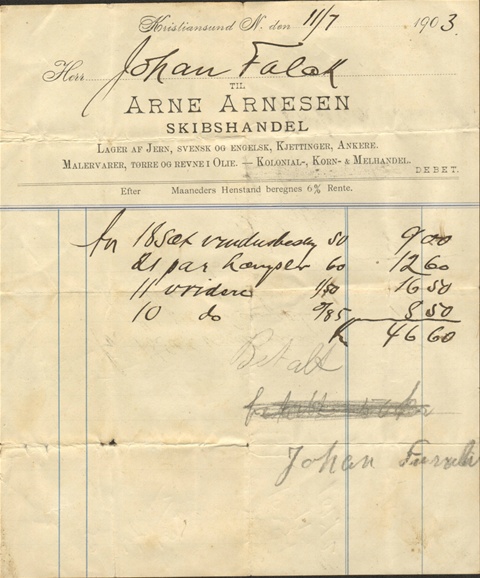 Kristiansund N. den 11/7 1903.
Herr Johan Falck
TIL
ARNE ARNESEN
SKIBSHANDEL
LAGER AF JERN, SVENSK OG ENGELSK, KJETTINGER, ANKERE.
MALERVARER, TØRRE OG REVNE I OLIE. — KOLONIAL-, KORN- & MELHANDEL.
DEBET.
Efter Maaneders Henstand beregnes 6% Rente.
18 Sæt vinduesbeslag 50 9 00
21 par hængsler 60 12 60
11 vridere 1/50 16 50
10 do "/85 8 50
Kr 46 60
Betalt
Johan